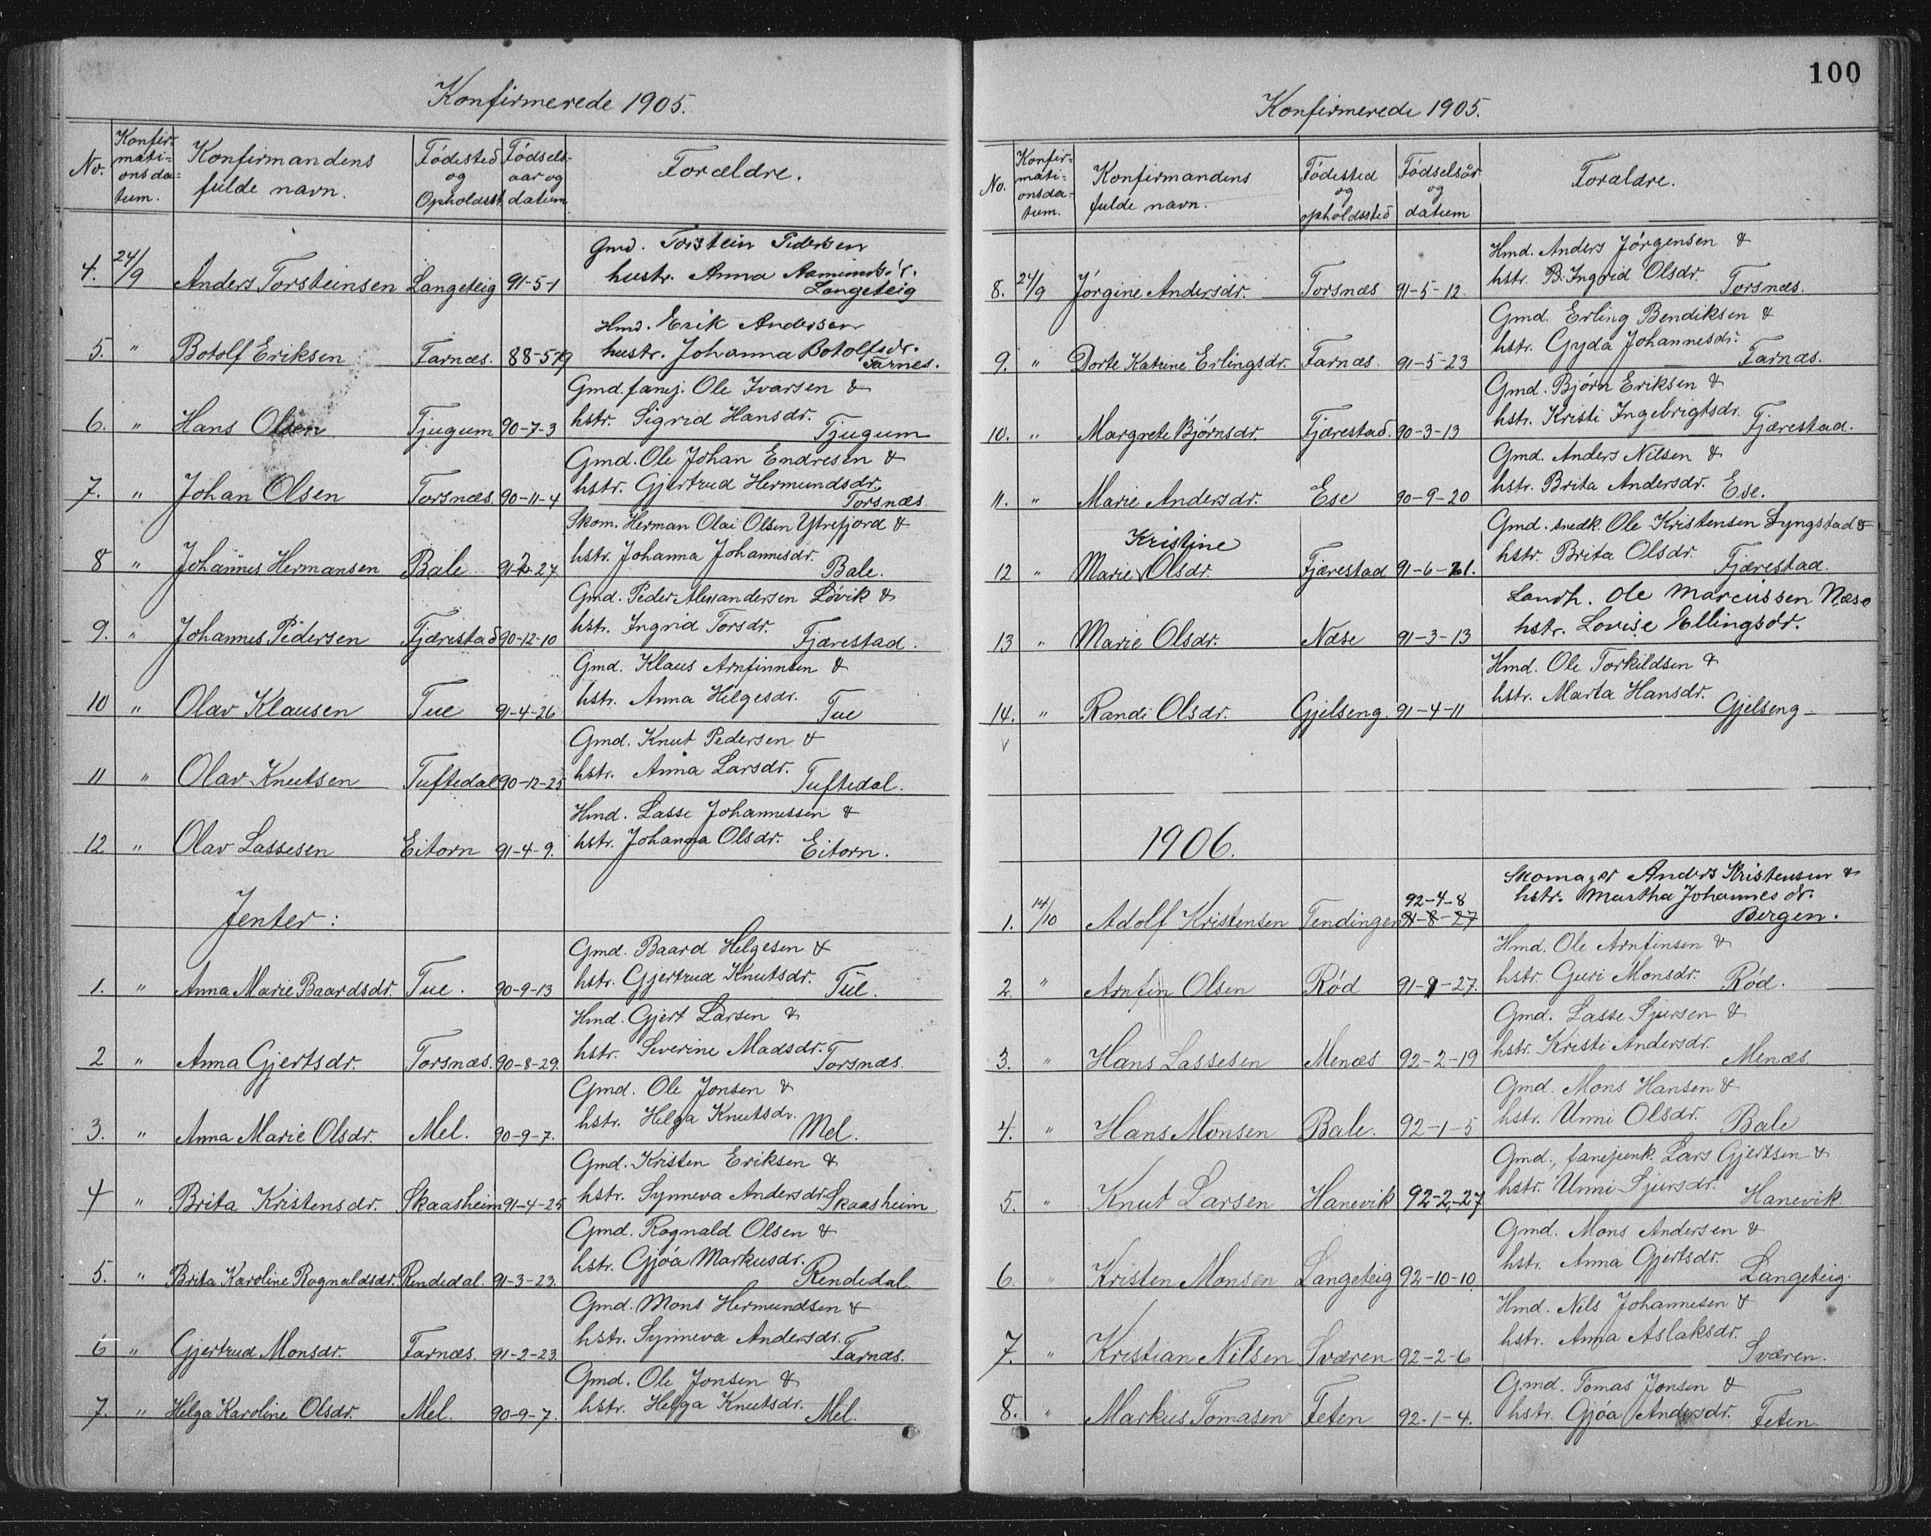 Konfirmerede 1905.
No. Konfirmationsdatum. Konfirmandens fulde navn. Fødested og Opholdsst. Fødselsaar og datum Forældre.
Gmd. Torstein Pedersen
4. 24/9 Anders Torsteinsen Langeteig 91-5-1 hustr. Anna
Langeteig
Hmd. Erik Andersen
5. " Botolf Eriksen Farnæs. 88-5-19 hustr. Johanna Botolfsdr.
Farnes.
Gmd. fanej. Ole Ivarsen &
6. " Hans Olsen Tjugum 90-7-3 hstr. Sigrid Hansdr.
Tjugum
Gmd. Ole Johan Endresen &
7. " Johan Olsen Torsnæs 90-11-4 hstr. Gjertrud Hermundsdr.
Torsnæs.
Skom. Herman Olai Olsen Ytrefjord &
8 " Johannes Hermansen Bale 91-2-27. hstr. Johanna Johannesdr.
Bale.
Gmd. Peder Alexandersen Løvik &
9. " Johannes Pedersen Fjærestad 90-12-10 hstr. Ingrid Torsdr.
Fjærestad.
Gmd. Klaus Arnfinnsen &
10 " Olav Klausen Tue 91-4-26 hstr. Anna Helgesdr.
Tue
Gmd. Knut Pedersen &
11 " Olav Knutsen Tuftedal 90-12-25 hstr. Anna Larsdr.
Tuftedal.
Hmd. Lasse Johannessen &
12 " Olav Lassesen Eitorn 91-4-9. hstr. Johanna Olsdr.
Eitorn.
Jenter:
Gmd. Baard Helgesen &
1. " Anna Marie Baardsdr. Tue. 90-9-13 hstr. Gjertrud Knutsdr.
Tue.
Hmd. Gjert Larsen &
2 " Anna Gjertsdr. Torsnæs. 90-8-29. hstr. Severine Madsdr.
Torsnæs.
Gmd. Ole Jonsen &
3. " Anna Marie Olsdr. Mel. 90-9-7. hstr. Helga Knutsdr.
Mel.
Gmd. Kristen Eriksen &
4 " Brita Kristensdr. Skaasheim 91-4-25 hstr. Synneva Andersdr.
Skaasheim.
Gmd. Rognald Olsen &
5. " Brita Karoline Rognaldsdr. Rendedal. 91-3-23. hstr. Gjøa Markusdr.
Rendedal.
Gmd. Mons Hermundsen &
6 " Gjertrud Monsdr. Farnæs. 91-2-23. hstr. Synneva Andersdr.
Farnæs.
Gmd. Ole Jonsen &
7. " Helga Karoline Olsdr. Mel. 90-9-7. hstr. Helga Knutsdr.
Mel.
100
Konfirmerede 1905.
No. Konfirmationsdatum. Konfirmandens fulde navn. Fødested og opholdssted Fødselsår og datum Forældre.
Hmd. Anders Jørgensen &
8. 24/9 Jørgine Andersdr. Torsnæs 91-5-12. hstr. B. Ingrid Olsdr.
Torsnæs.
Gmd. Erling Bendiksen &
9. " Dorte Katrine Erlingsdr. Farnæs. 91-5-23 hstr. Gyda Johannesdr.
Farnæs.
Gmd. Bjørn Eriksen &
10. " Margrete Bjørnsdr. Fjærestad. 90-3-13 hstr. Kristi Ingebrigtsdr.
Fjærestad.
Gmd. Anders Nilsen &
11. " Marie Andersdr. Ese 90-9-20 hstr. Brita Andersdr.
Ese.
Gmd. snedk. Ole Kristensen Lyngstad &
Kristine
12 " Marie Olsdr. Fjærestad 91-6-21. hstr. Brita Olsdr.
Fjærestad.
Landh. Ole Marcussen Næse
13 " Marie Olsdr. Næse 91-3-13 hstr. Lovise Ellingsdr.
Hmd. Ole Torkildsen &
14. " Randi Olsdr. Gjelseng. 91-4-11 hstr. Marta Hansdr.
Gjelseng
1906.
Skomager Anders Kristensen &
92-4-8
1. 14/10 Adolf Kristensen Tendingen 91-8-27 hstr. Martha Johannesdr.
Bergen.
Hmd. Ole Arnfinsen &
2. " Arnfin Olsen Rød 91-9-27. hstr. Guri Monsdr.
Rød.
Gmd. Lasse Sjursen &
3. " Hans Lassesen Menæs 92-2-19 hstr. Kristi Andersdr.
Menæs
Gmd. Mons Hansen &
4. " Hans Monsen Bale. 92-1-5 hstr. Unni Olsdr.
Bale
Gmd., fanejunk. Lars Gjertsen &
5. " Knut Larsen Hanevik 92-2-27 hstr. Unni Sjursdr.
Hanevik
Gmd. Mons Andersen &
6. " Kristen Monsen Langeteig 92-10-10. hstr. Anna Gjertsdr.
Langeteig.
Hmd. Nils Johannesen &
7. " Kristian Nilsen Sværen 92-2-6 hstr. Anna Aslaksdr.
Sværen.
Gmd. Tomas Jonsen &
8. " Markus Tomasen Feten 92-1-4. hstr. Gjøa Andersdr.
Feten.